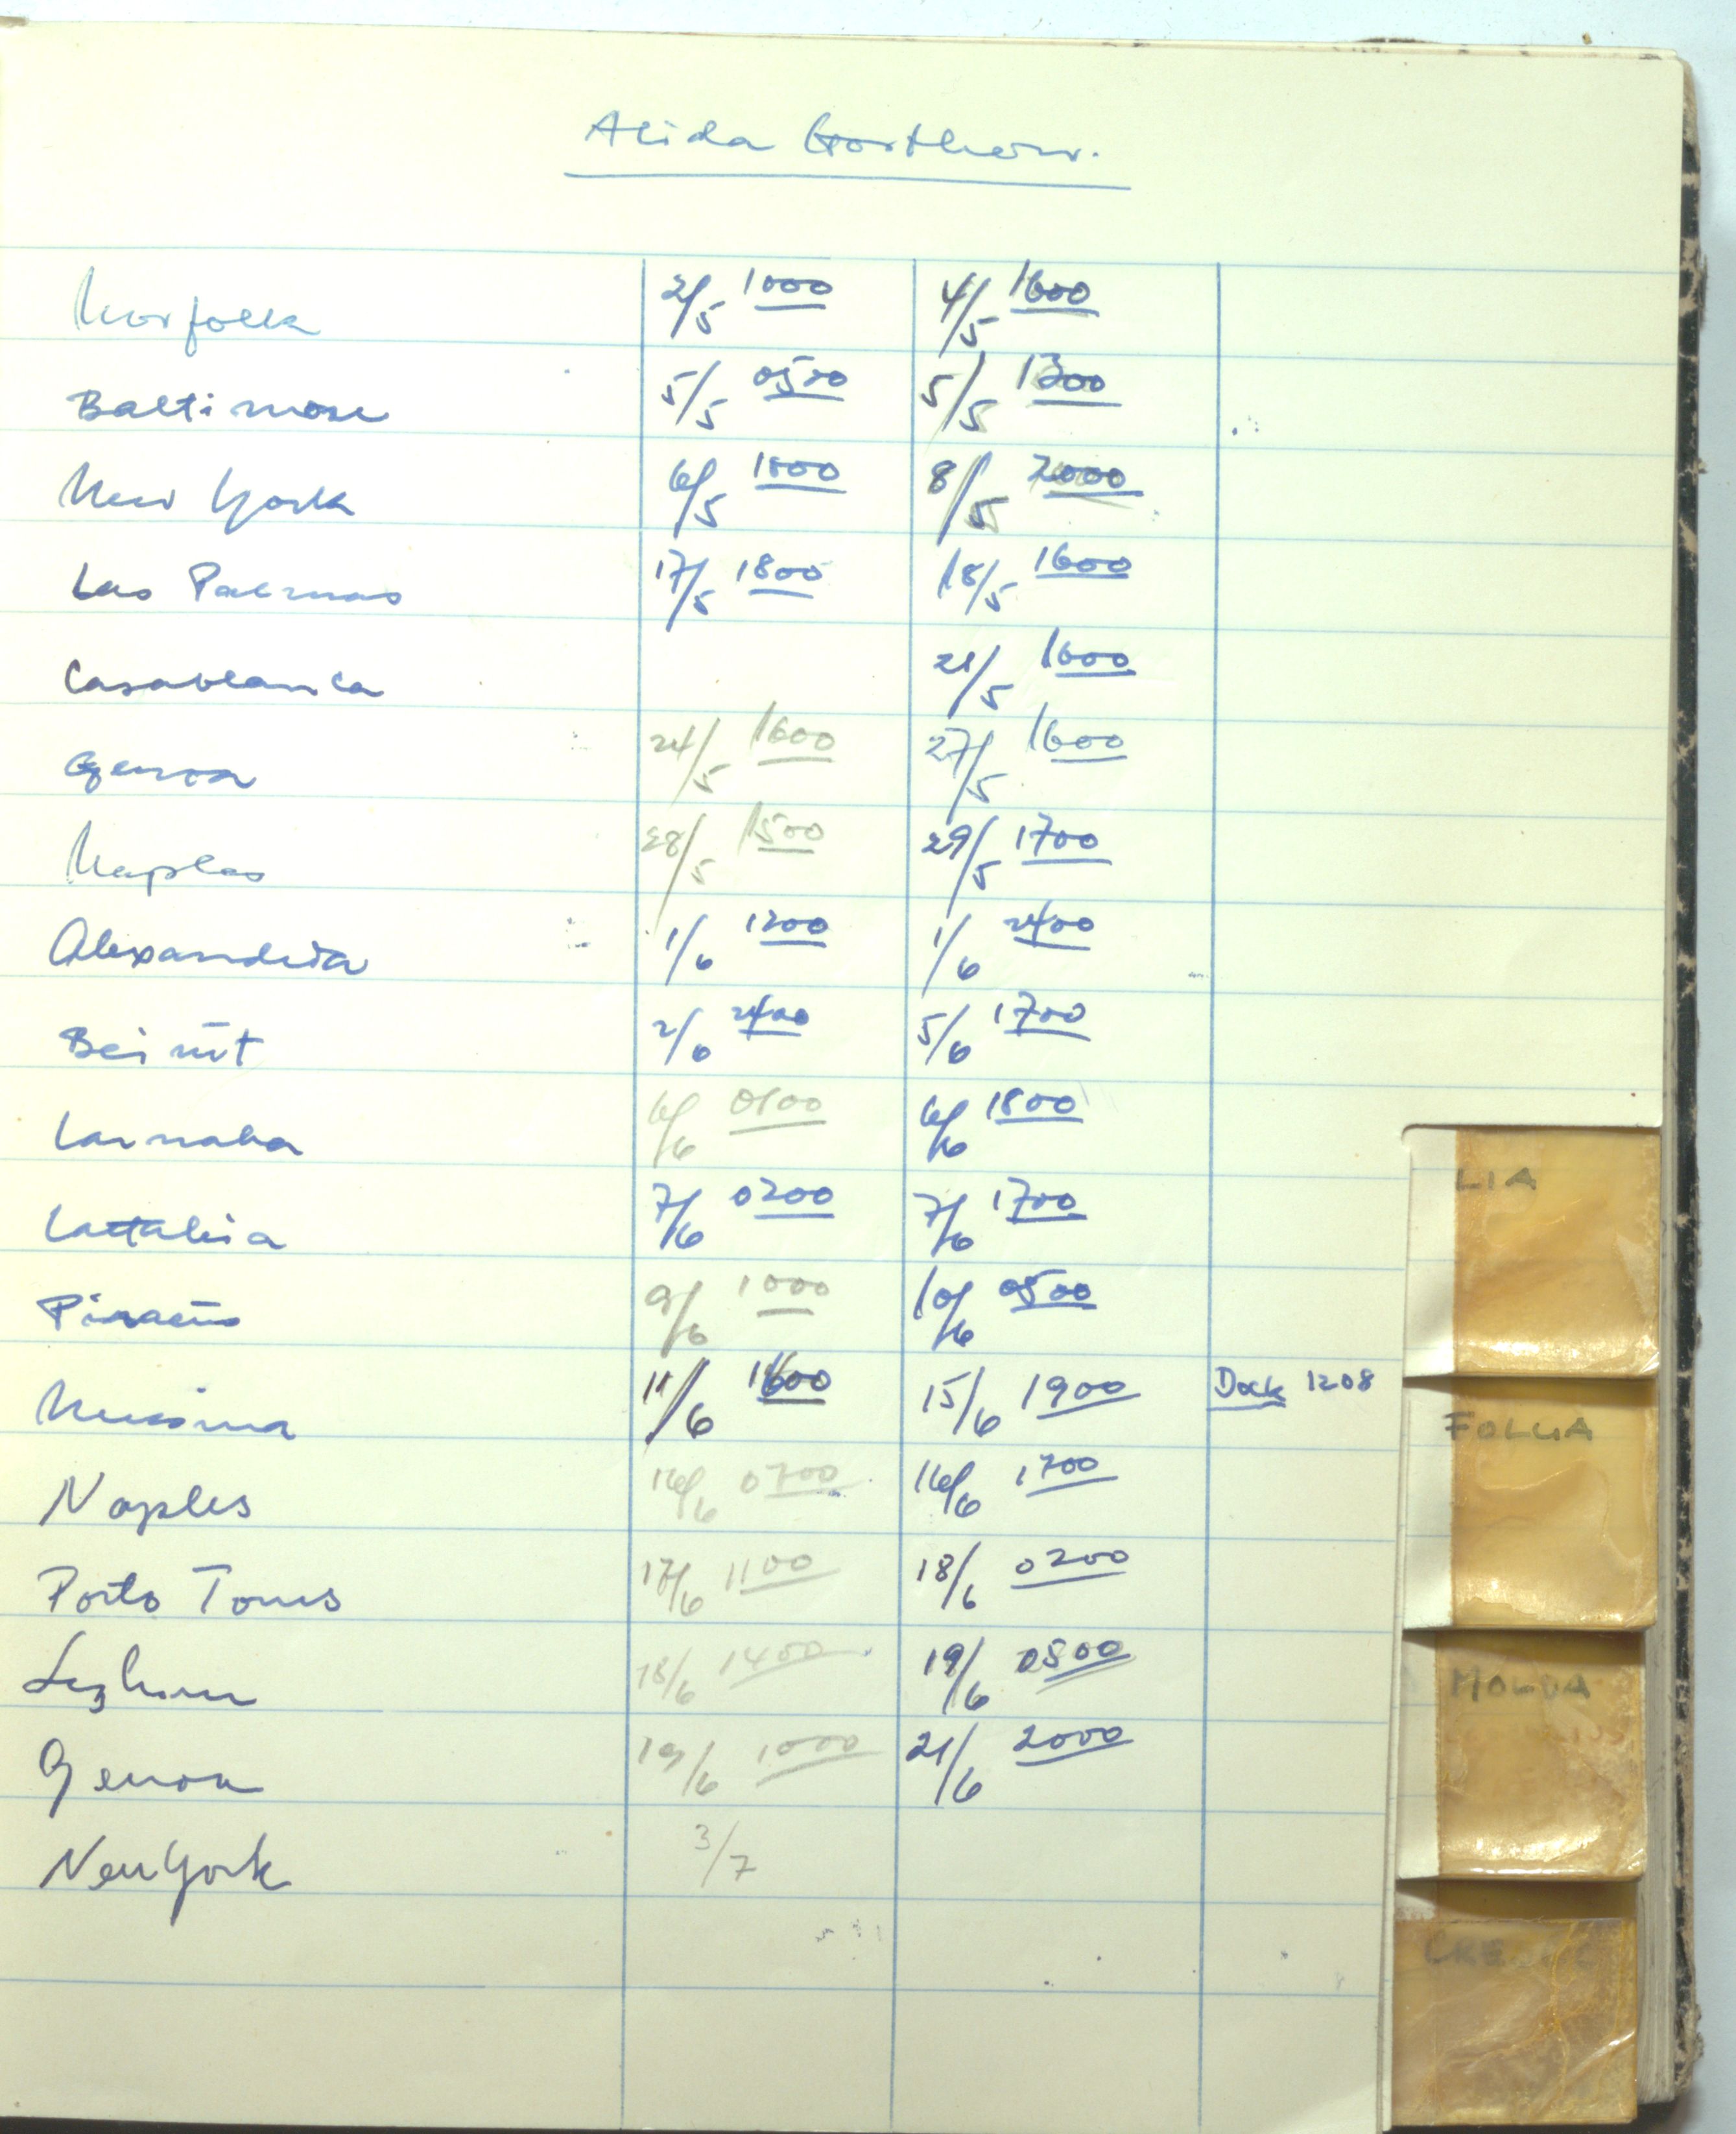 Alida Gorthon.
Norfolk 2/5 1000 4/5 1600
Baltimore 5/5 0500 5/5 1300
New York 6/5 1800 8/5 2000
Las Palmas 17/5 1800 18/5 1600
Casablanca 21/5 1600
Genoa 24/5 1600 27/5 1600
Naples 28/5 1500 29/5 1700
Alexandria 1/6 1200 1/6 2400
Beirut 2/6 2400 5/6 1700
Larnaka 6/6 0100 6/6 1800
Lattakia 7/6 0200 7/6 1700
Piraeus 9/6 1000 10/6 0500
Messina 11/6 1600 15/6 1900 Dock 1208
Naples 16/6 0700 16/6 1700
Porto Torres 17/6 1100 18/6 0200
Leghorn 18/6 1400 19/6 0500
Genoa 19/6 1000 21/6 2000
New York 3/7
LIA
FOLGIA